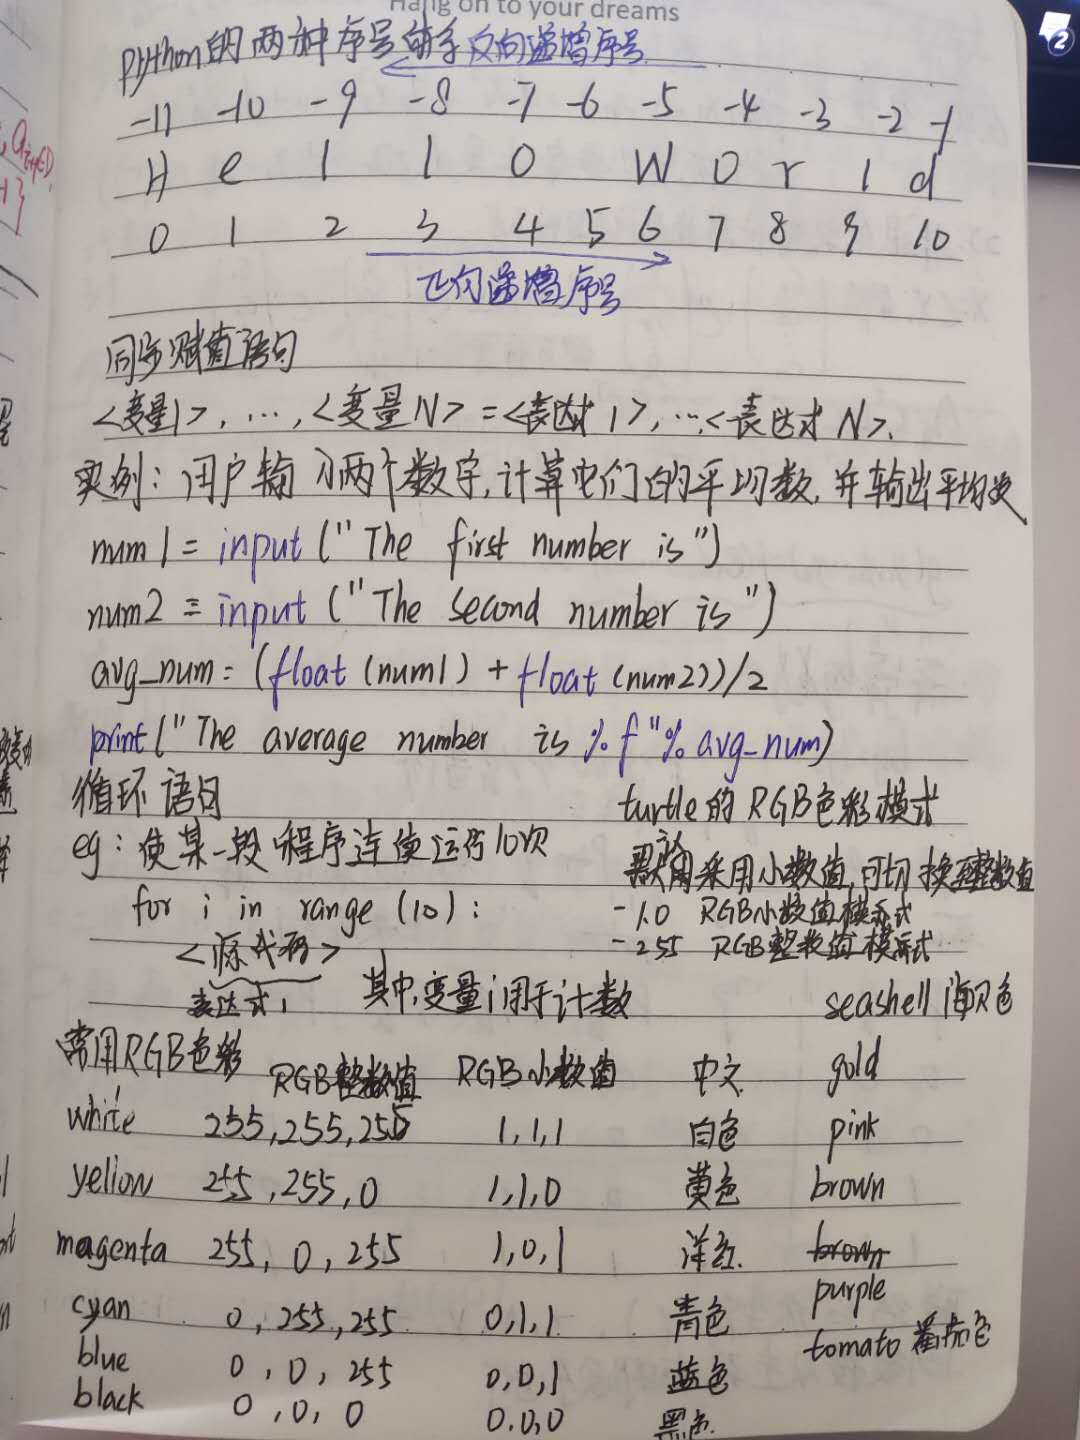 Hang on to your dreams
2
python的两种序号体系 反向递增序号
-11 -10 -9 -8 -7 -6 -5 -4 -3 -2 -1
H e l l o W o r l d
0 1 2 3 4 5 6 7 8 9 10
正向递增序号
同步赋值语句
<变量1>, …, <变量N> = <表达式1>, …, <表达式N>.
实例: 用户输入两个数字, 计算它们的平均数, 并输出平均数
num1 = input ("The first number is")
num2 = input ("The second number is")
avg_num = (float (num1) + float (num2))/2
print("The average number is %f"% avg_num)
循环语句 turtle的RGB色彩模式
eg: 使某一段程序连续运行10次 默认采用小数值, 可切换至整数值
for i in range (10): -1.0 RGB小数值模式
<源代码> -255 RGB整数值模式
表达式1 其中, 变量i用于计数 seashell 海贝色
常用RGB色彩 RGB整数值 RGB小数值 中文 gold
white 255,255,255 1,1,1 白色 pink
yellow 255,255,0 1,1,0 黄色 brown
magenta 255, 0, 255 1,0,1 洋红 brown
purple
cyan 0, 255, 255 0,1,1 青色 tomato 番茄色
blue 0, 0, 255 0,0,1 蓝色
black 0, 0, 0 0.0,0 黑色